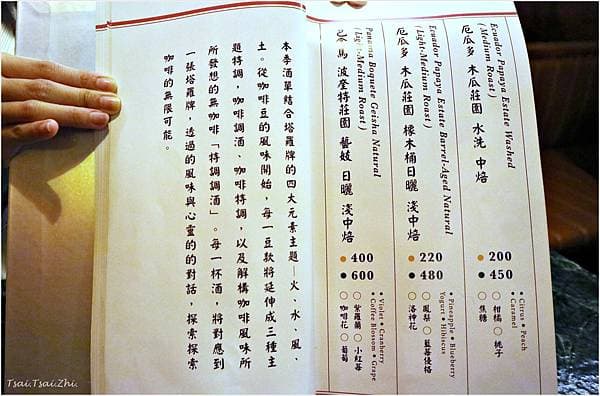 Ecuador Papaya Estate Washed
(Medium Roast)
厄瓜多 木瓜莊園 水洗 中焙
200
450
• Citrus • Peach
• Caramel
○ 柑橘 ○ 桃子
○ 焦糖
Ecuador Papaya Estate Barrel-Aged Natural
(Light-Medium Roast)
厄瓜多 木瓜莊園 橡木桶日曬 淺中焙
220
480
• Pineapple • Blueberry
Yogurt • Hibiscus
○ 鳳梨 ○ 藍莓優格
○ 洛神花
Panama Boquete Geisha Natural
(Light-Medium Roast)
巴拿馬 波奎特莊園 藝妓 日曬 淺中焙
400
600
• Violet • Cranberry
• Coffee Blossom • Grape
○ 紫羅蘭 ○ 小紅莓
○ 咖啡花 ○ 葡萄
本季酒單結合塔羅牌的四大元素主題—火、水、風、
土。從咖啡豆的風味開始,每一豆款將延伸成三種主
題特調,咖啡調酒、咖啡特調,以及解構咖啡風味所
所發想的無咖啡「特調調酒」。每一杯酒,將對應到
一張塔羅牌,透過的風味與心靈的的對話,探索探索
咖啡的無限可能。
Tsai.Tsai.Zhi.